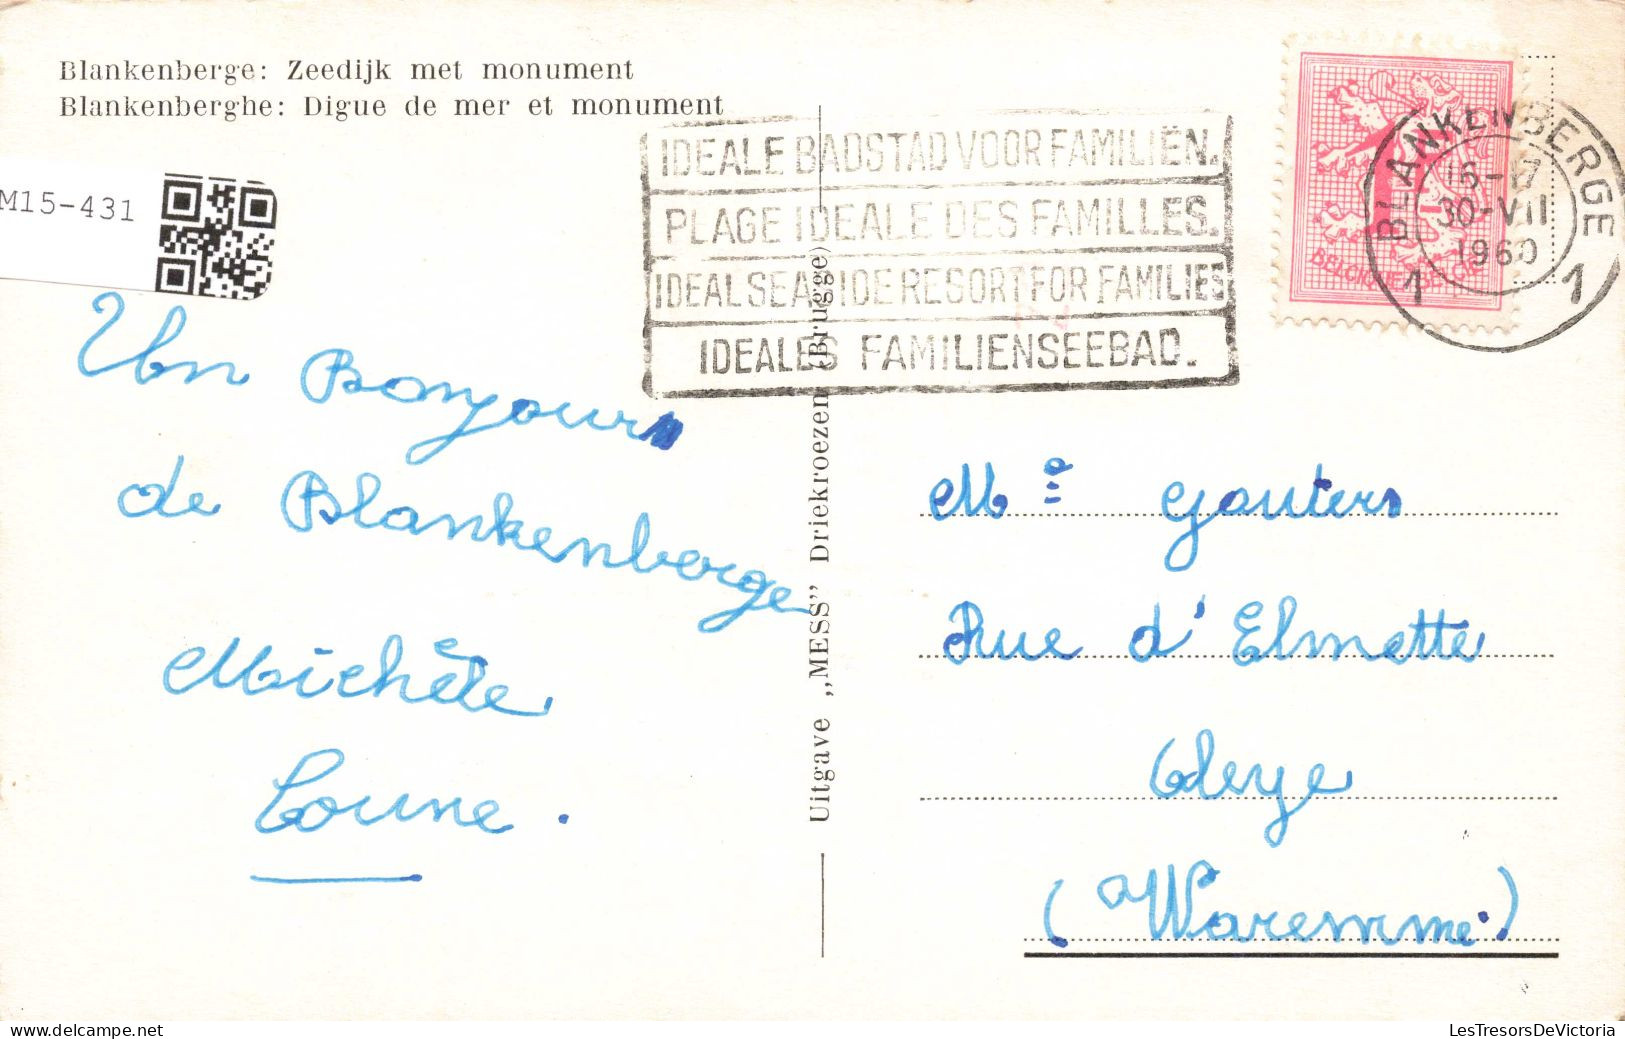 Blankenberge: Zeedijk met monument
Blankenberghe: Digue de mer et monument
M15-431
IDEALE BADSTAD VOOR FAMILIËN.
PLAGE IDEALE DES FAMILLES.
IDEAL SEASIDE RESORT FOR FAMILIES
IDEALES FAMILIENSEEBAD.
BLANKENBERGE
16-17
30-VII
1960
1 1
BELGIQUE-BELGIE
Un Bonjour
de Blankenberge
Michèle
Uitgave „MESS” Driekroezen (Brugge)
Mme Gouters
Rue d'Elmette
Oleye
(Waremme.)
LesTresorsDeVictoria.com
LesTresorsDeVictoria